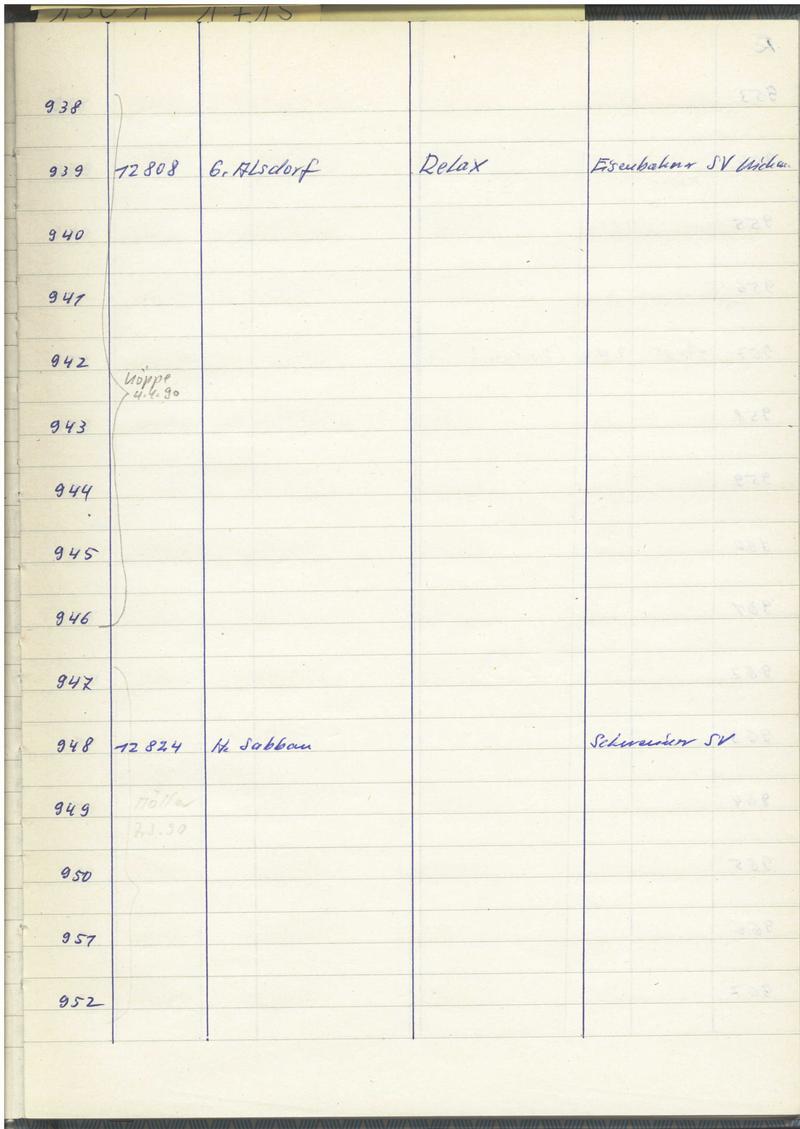 938
939 12808 G. Alsdorf Relax Eisenbahner SV
940
941
942
Köppe
4.4.90
943
944
945
946
947
948 12824 H. Sabban Schweriner SV
949
950
951
952